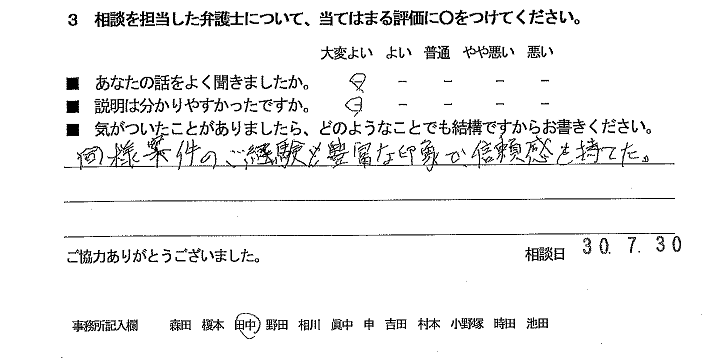 3 相談を担当した弁護士について、当てはまる評価に〇をつけてください。
大変よい よい 普通 やや悪い 悪い
■ あなたの話をよく聞きましたか。 － － － － －
■ 説明は分かりやすかったですか。 － － － － －
■ 気がついたことがありましたら、どのようなことでも結構ですからお書きください。
同様案件のご経験も豊富な印象で、信頼感を持てた。
ご協力ありがとうございました。 相談日 30.7.30
事務所記入欄 森田 榎本 田中 野田 相川 眞中 申 吉田 村本 小野塚 時田 池田